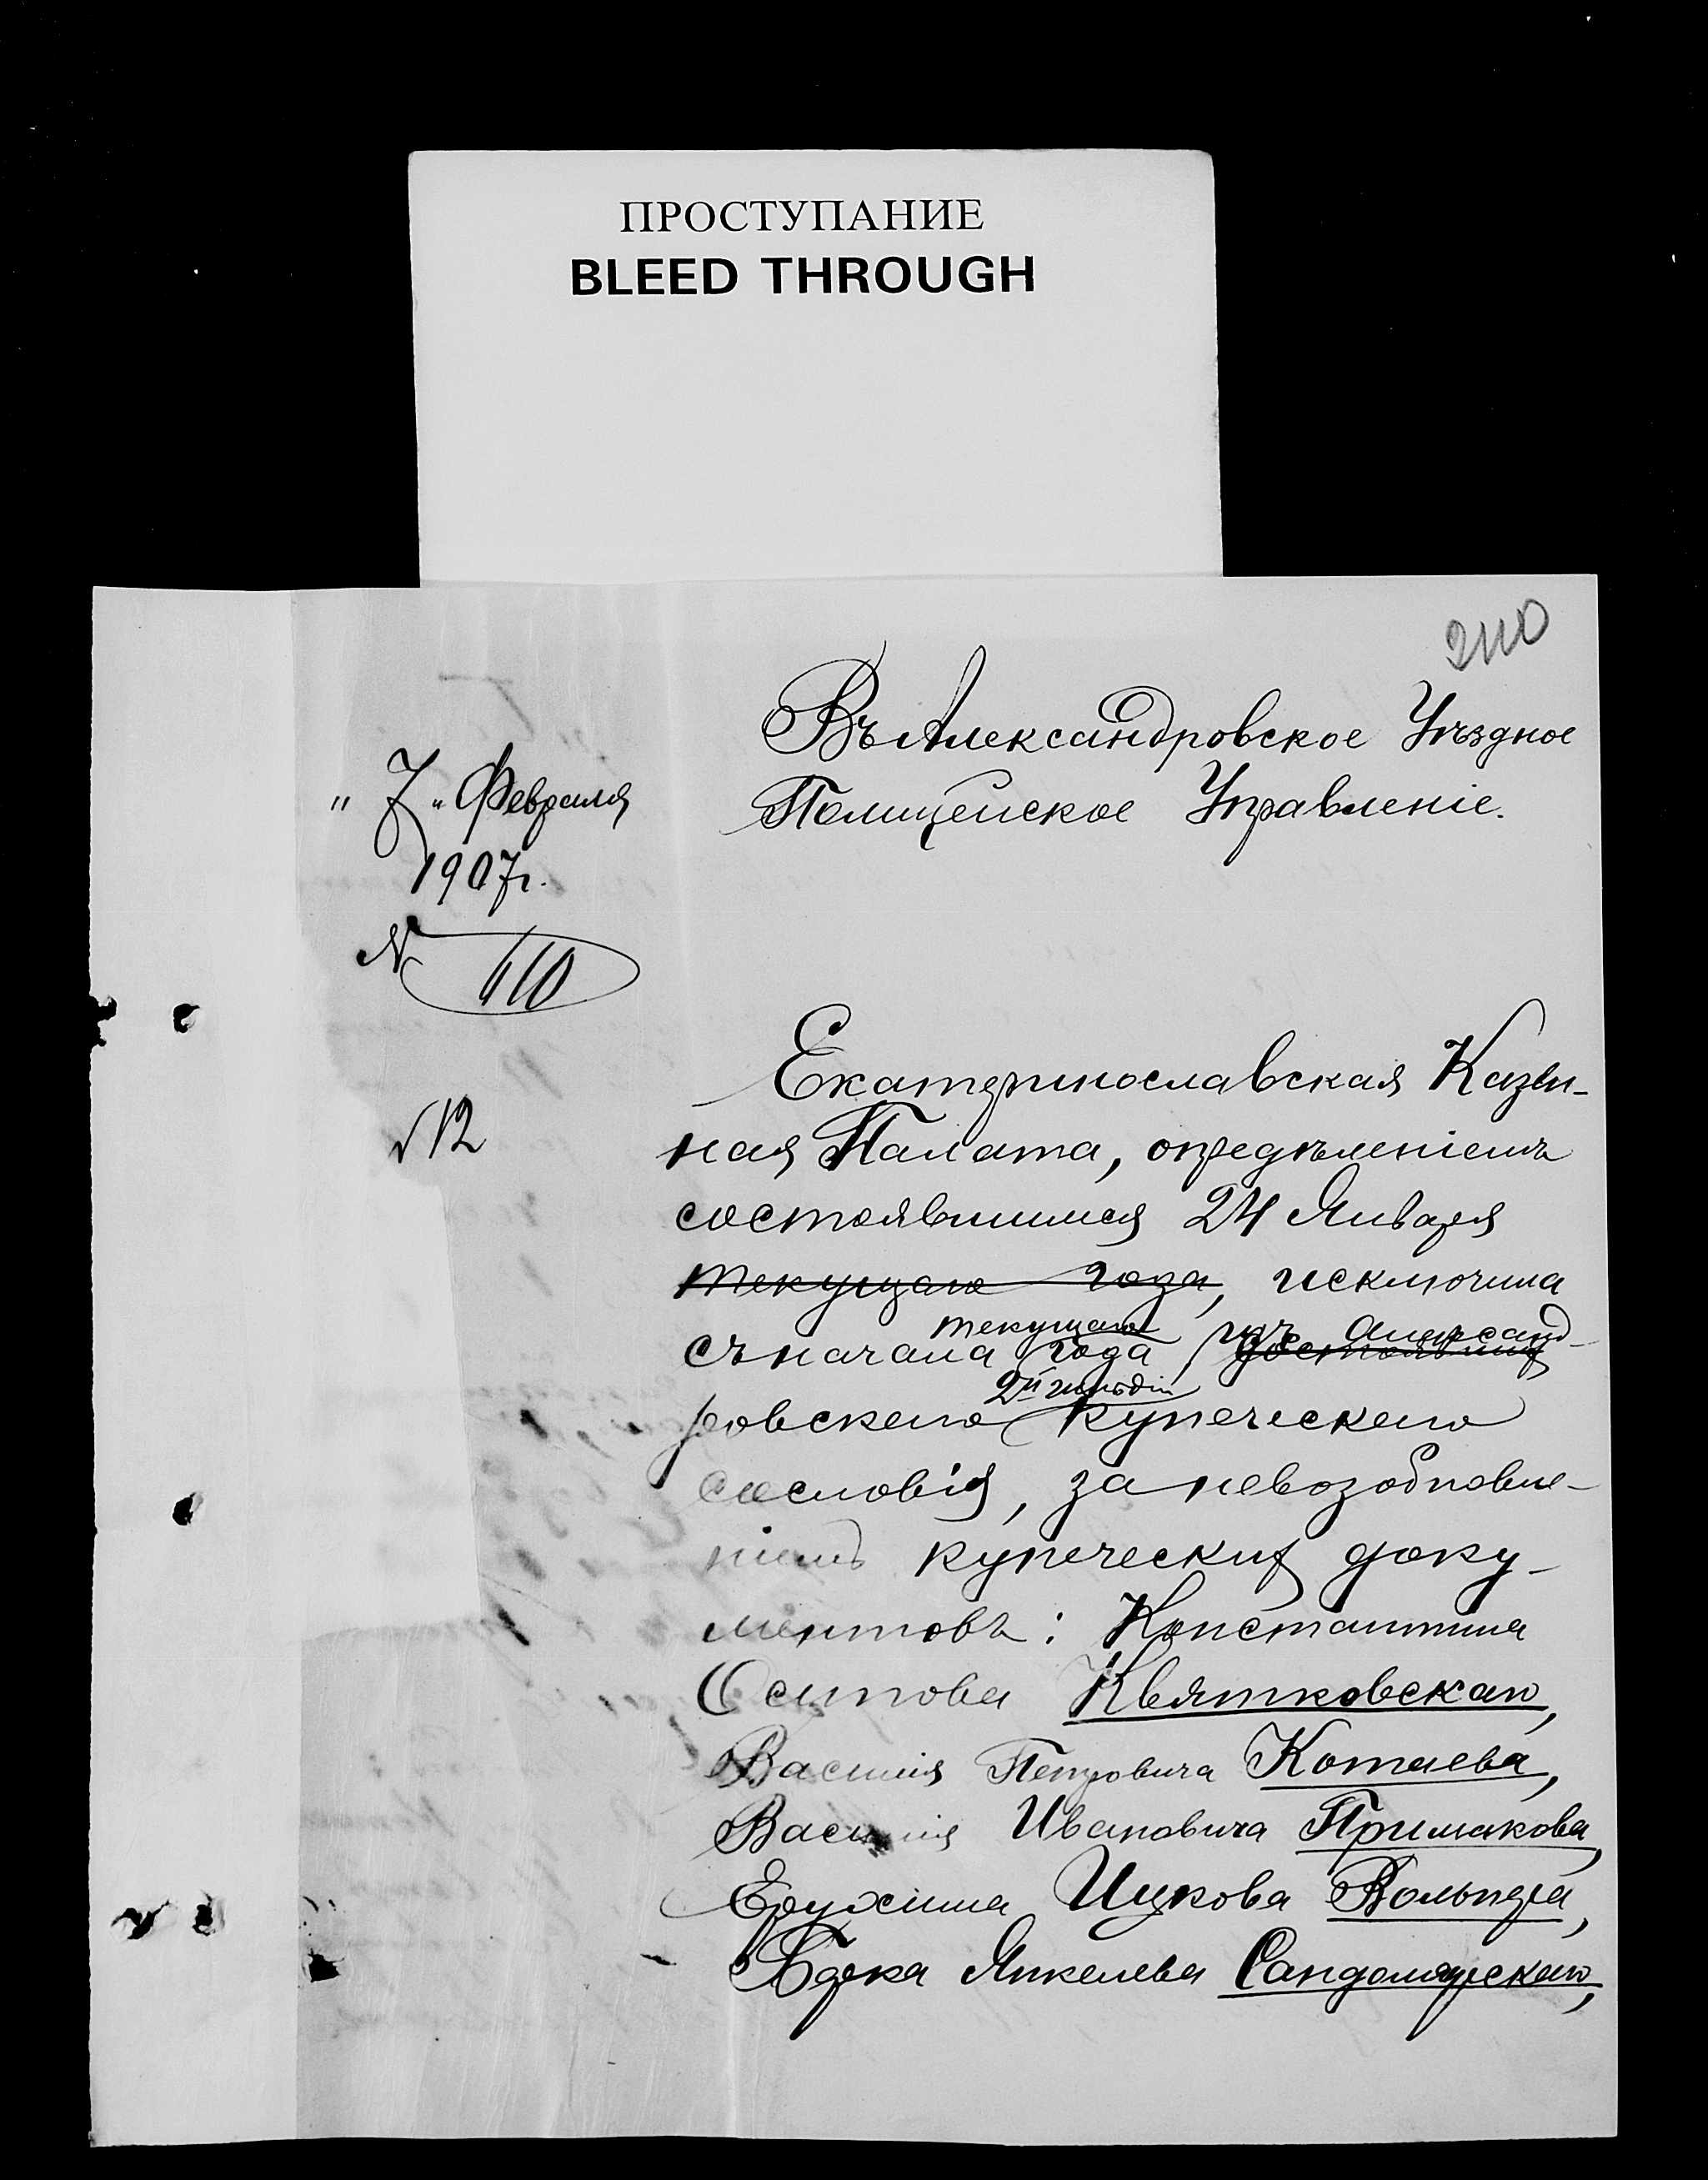 ПРОСТУПАНИЕ
BLEED THROUGH
Въ Александровское Уѣздное
Полицейское Управленіе.
" 7 " Февраля
1907 г.
№ 110
Екатеринославская Казен-
ная Палата, опредѣленіемъ
состоявшимся 24 Января
текущаго года, исключила
съ начала текущаго года, изъ Александ-
ровскаго 2й гильдіи купеческаго
сословія, за невозобновле-
ніемъ купеческихъ доку-
ментовъ: Константина
Осипова Квятковскаго,
Василія Петровича Котаева,
Василія Ивановича Примакова,
Ерухима Ицкова Вольпера,
Берка Янкелева Сандомирскаго,